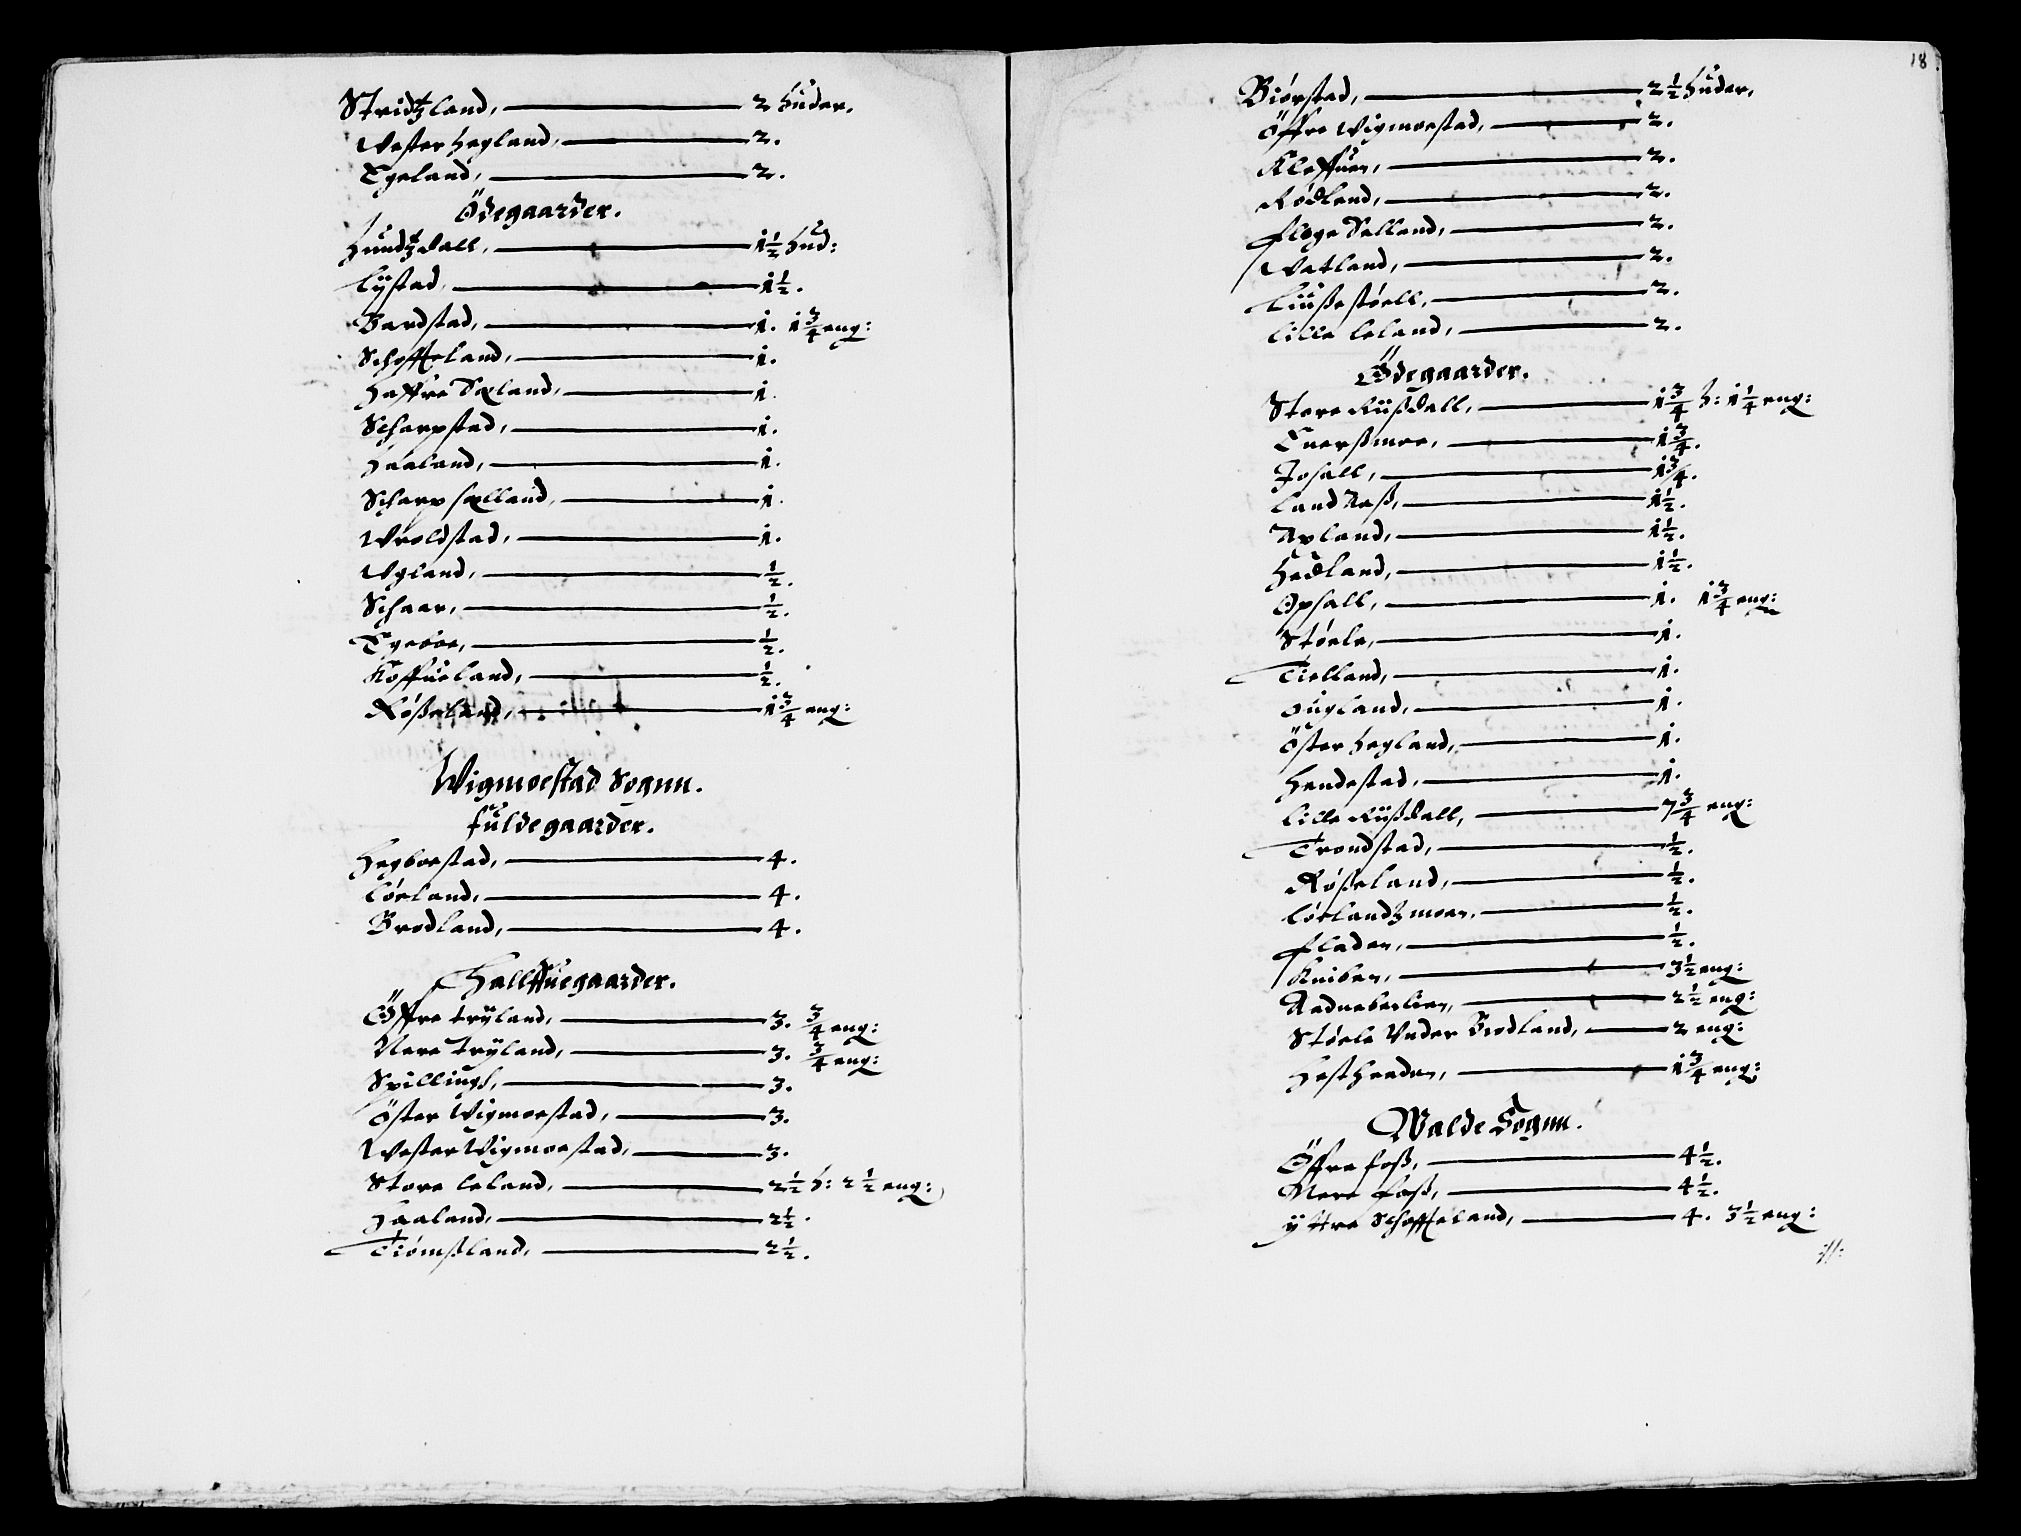 Stridtzland, 2 huder.
Westerhegland, 2.
Egeland, 2.
Ödegaarder.
Hundtzdall, 1½ hud:
Lÿstad, 1½.
Bardstad, 1. 1¾ eng:
Schoffteland, 1.
Haffre Sæland, 1.
Scharpstad, 1.
Haaland, 1.
Scharpsælland, 1.
Wroldstad, 1.
Wgland, ½.
Schaar, ½.
Egeboe, ½.
Koffueland, ½.
Rößeland, 1¾ eng:
Wigmoestad Sognn.
fuldegaarder.
Hegboestad, 4.
Löeland, 4.
Brodland, 4.
Hallffuegaarder.
Öffre trÿland, 3. ¾ eng:
Nere Trÿland, 3. ¾ eng:
Spillingh, 3.
Öster Wigmoestad, 3.
Wester Wigmoestad, 3.
Store Leland, 2½ h: 2½ eng:
Haaland, 2½.
Tiömßland, 2½.
18
Biörstad, 2½ huder,
Öffre Wigmoestad, 2.
Kleffuen, 2.
Rödland, 2.
floge Selland, 2.
Watland, 2.
Liußestöell, 2.
Lille Leland, 2.
Ödegaarder.
Store Rüßdall, 1¾ h: 1¼ eng:
Tuerßmoe, 1¾.
Josall, 1¾.
Land Aaß, 1½.
Apland, 1½.
Hedland, 1½.
Opsall, 1. 1¾ eng:
Stöele, 1.
Tielland, 1.
Dugland, 1.
Öster hegland, 1.
Handestad, 1.
Lille Rüßdall, 7¾ eng:
Trondstad, ½.
Rößeland, ½.
Löelandtzmoen, ½.
fladen, ½.
Kniben, 3½ eng:
Aadneberlien, 2½ eng:
Stöele Vnder Brodland, 2 eng:
Hestheeden, 1¾ eng:
Walde Sognn.
Öffre foß, 4½.
Nere foß, 4½.
ÿttre Schoffteland, 4. 3½ eng:
://: